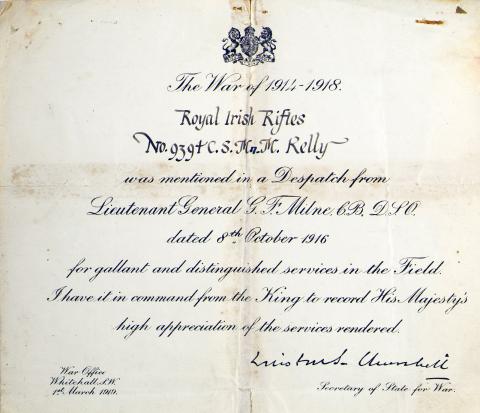 The War of 1914-1918.
Royal Irish Rifles
No. 9394 C.S.M. M. Kelly
was mentioned in a Despatch from
Lieutenant General G. F. Milne, CB, DSO.
dated 8th October 1916
for gallant and distinguished services in the Field.
I have it in command from the King to record His Majesty's
high appreciation of the services rendered.
Winston S. Churchill
War Office
Whitehall, S.W.
1st March 1919.
Secretary of State for War.